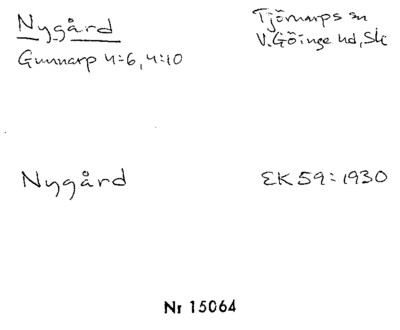 Nygård
Tjörnarps sn
Gunnarp 4:6, 4:10
V. Göinge hd, Sk
Nygård
EK 59:1930
Nr 15064